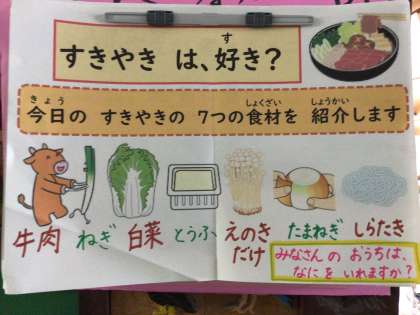 すきやき は、好き?
今日の すきやきの 7つの食材を 紹介します
牛肉 ねぎ 白菜 とうふ えのきだけ たまねぎ しらたき
みなさんの おうちは、
なにを いれますか?